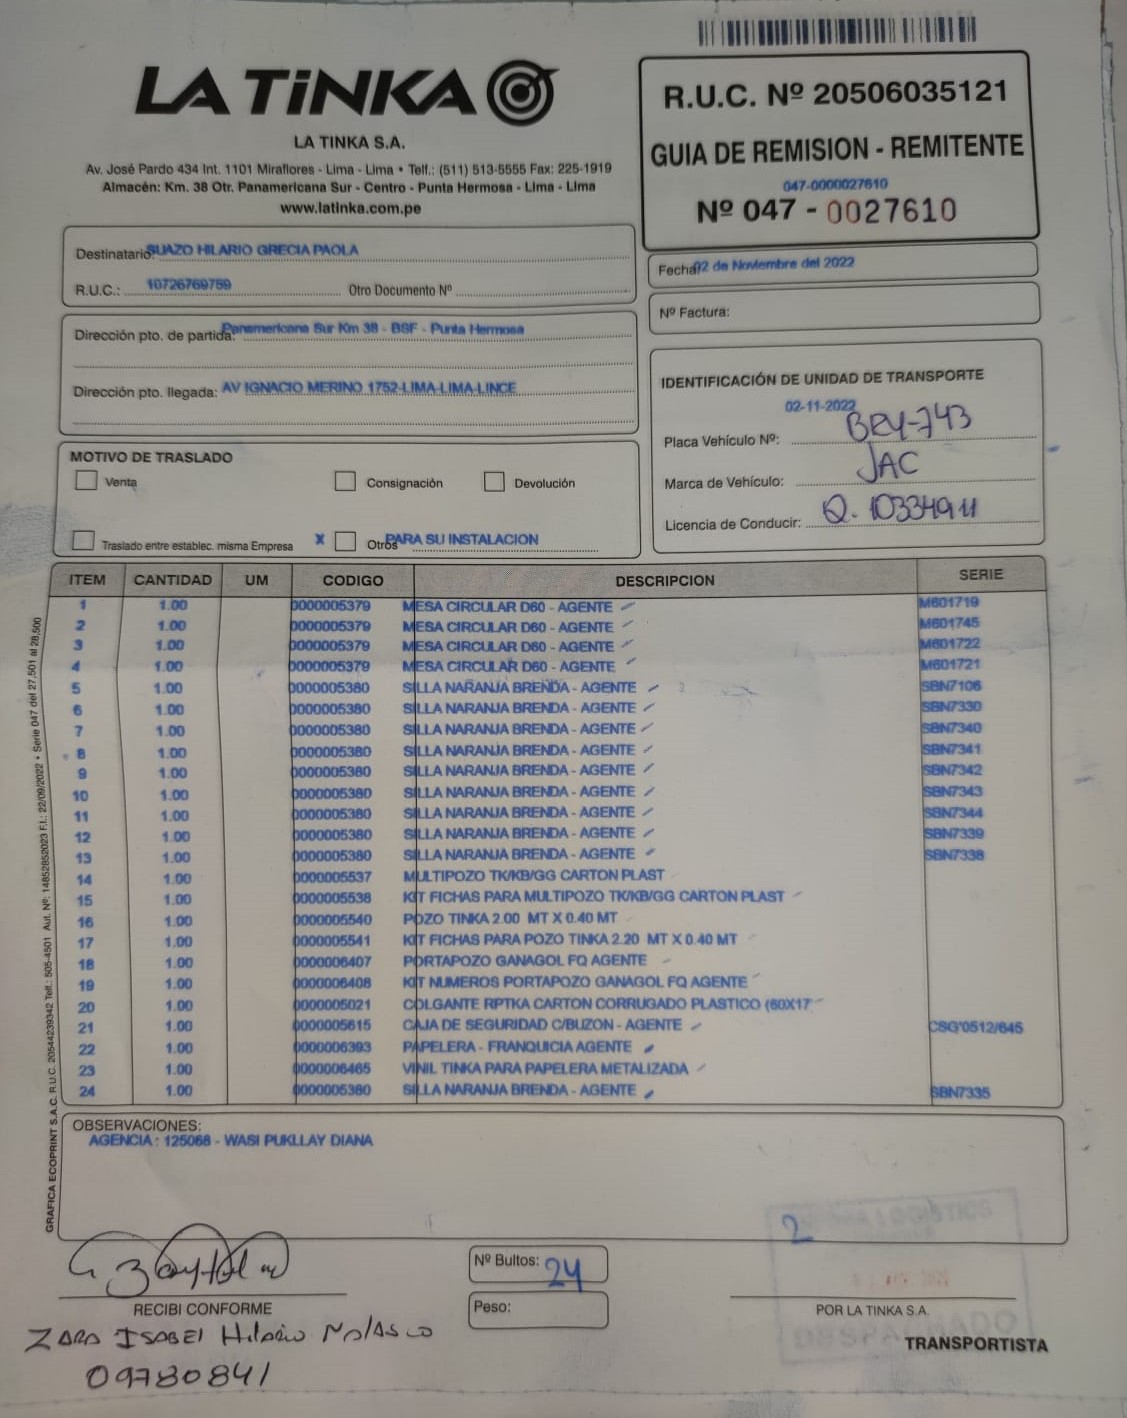 LA TiNKA
LA TINKA S.A.
Av. José Pardo 434 Int. 1101 Miraflores - Lima - Lima • Telf.: (511) 513-5555 Fax: 225-1919
Almacén: Km. 38 Otr. Panamericana Sur - Centro - Punta Hermosa - Lima - Lima
www.latinka.com.pe
R.U.C. Nº 20506035121
GUIA DE REMISION - REMITENTE
047-0000027610
Nº 047 - 0027610
Destinatario: SUAZO HILARIO GRECIA PAOLA
R.U.C.: 10726769759 Otro Documento Nº
Fecha: 02 de Noviembre del 2022
Nº Factura:
Dirección pto. de partida: Panamericana Sur Km 38 - BSF - Punta Hermosa
Dirección pto. llegada: AV IGNACIO MERINO 1752-LIMA-LIMA-LINCE
IDENTIFICACIÓN DE UNIDAD DE TRANSPORTE
02-11-2022
Placa Vehículo Nº: BRY-743
Marca de Vehículo: JAC
Licencia de Conducir: Q. 10334911
MOTIVO DE TRASLADO
Venta Consignación Devolución
Traslado entre establec. misma Empresa X Otros PARA SU INSTALACION
ITEM CANTIDAD UM CODIGO DESCRIPCION SERIE
1 1.00 0000005379 MESA CIRCULAR D60 - AGENTE M601719
2 1.00 0000005379 MESA CIRCULAR D60 - AGENTE M601745
3 1.00 0000005379 MESA CIRCULAR D60 - AGENTE M601722
4 1.00 0000005379 MESA CIRCULAR D60 - AGENTE M601721
5 1.00 0000005380 SILLA NARANJA BRENDA - AGENTE SBN7106
6 1.00 0000005380 SILLA NARANJA BRENDA - AGENTE SBN7330
7 1.00 0000005380 SILLA NARANJA BRENDA - AGENTE SBN7340
8 1.00 0000005380 SILLA NARANJA BRENDA - AGENTE SBN7341
9 1.00 0000005380 SILLA NARANJA BRENDA - AGENTE SBN7342
10 1.00 0000005380 SILLA NARANJA BRENDA - AGENTE SBN7343
11 1.00 0000005380 SILLA NARANJA BRENDA - AGENTE SBN7344
12 1.00 0000005380 SILLA NARANJA BRENDA - AGENTE SBN7339
13 1.00 0000005380 SILLA NARANJA BRENDA - AGENTE SBN7338
14 1.00 0000005537 MULTIPOZO TK/KB/GG CARTON PLAST
15 1.00 0000005538 KIT FICHAS PARA MULTIPOZO TK/KB/GG CARTON PLAST
16 1.00 0000005540 POZO TINKA 2.00 MT X 0.40 MT
17 1.00 0000005541 KIT FICHAS PARA POZO TINKA 2.20 MT X 0.40 MT
18 1.00 0000006407 PORTAPOZO GANAGOL FQ AGENTE
19 1.00 0000006408 KIT NUMEROS PORTAPOZO GANAGOL FQ AGENTE
20 1.00 0000005021 COLGANTE RPTKA CARTON CORRUGADO PLASTICO (60X17
21 1.00 0000005615 CAJA DE SEGURIDAD C/BUZON - AGENTE CSG'0512/645
22 1.00 0000006393 PAPELERA - FRANQUICIA AGENTE
23 1.00 0000006465 VINIL TINKA PARA PAPELERA METALIZADA
24 1.00 0000005380 SILLA NARANJA BRENDA - AGENTE SBN7335
GRAFICA ECOPRINT S.A.C. R.U.C. 20544239342 Telf.: 505-4501 Aut. Nº: 14852852023 F.I.: 22/09/2022 • Serie 047 del 27,501 al 28,500
OBSERVACIONES:
AGENCIA : 125068 - WASI PUKLLAY DIANA
2
LOGISTICS
DESPACHADO
Nº Bultos: 24
Peso:
RECIBI CONFORME
ZARA ISABEl Hilario Nolasco
09780841
POR LA TINKA S.A.
TRANSPORTISTA